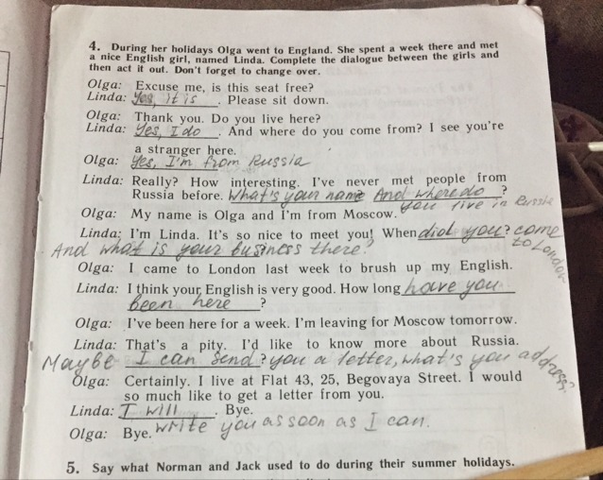 4. During her holidays Olga went to England. She spent a week there and met
a nice English girl, named Linda. Complete the dialogue between the girls and
then act it out. Don't forget to change over.
Olga: Excuse me, is this seat free?
Linda: Yes, it is. Please sit down.
Olga: Thank you. Do you live here?
Linda: Yes, I do. And where do you come from? I see you're
a stranger here.
Olga: Yes, I'm from Russia
Linda: Really? How interesting. I've never met people from
Russia before. What's your name And where do ?
you live in Russia
Olga: My name is Olga and I'm from Moscow.
Linda: I'm Linda. It's so nice to meet you! When did you? come
to London
And what is your business there?
Olga: I came to London last week to brush up my English.
Linda: I think your English is very good. How long have you
been here ?
Olga: I've been here for a week. I'm leaving for Moscow tomorrow.
Linda: That's a pity. I'd like to know more about Russia.
Maybe I can send ? you a letter, what's you address?
Olga: Certainly. I live at Flat 43, 25, Begovaya Street. I would
so much like to get a letter from you.
Linda: I will . Bye.
Olga: Bye. write you as soon as I can.
5. Say what Norman and Jack used to do during their summer holidays.